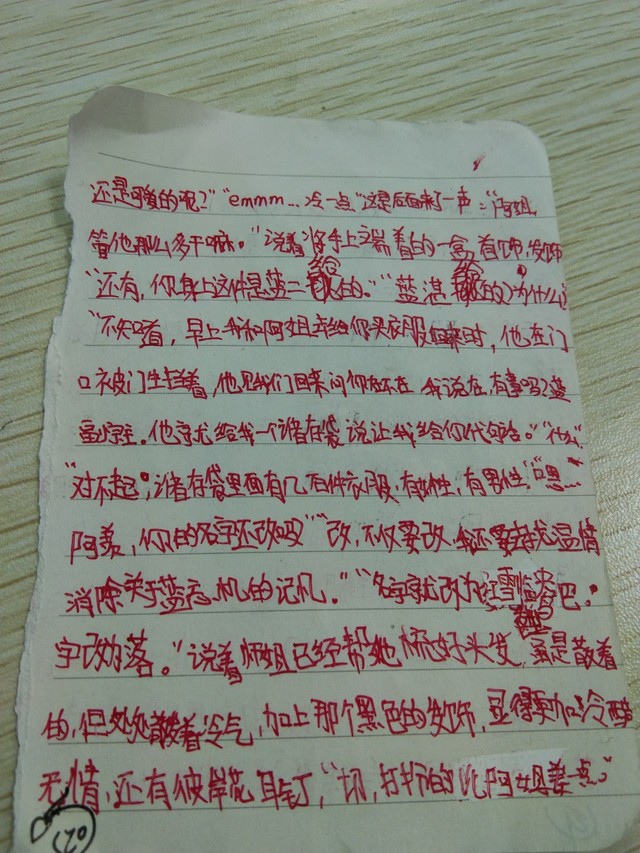 还是可爱的呢？”“emmm...冷一点”这是后面来了一声：“阿姐，
管他那么多干嘛。”说着将手上端着的一盒首饰，发饰
“还有，你身上这件是蓝二给的。”“蓝湛给的？为什么
“不知道，早上我和阿姐去给你买衣服回来时，他在门
口被门生拦着，他见我们回来问你在不在，我说在，有事吗？蓝
副宗主。他字就给我一个储存袋说让我给你代领给。”“什么”
“对不起，储存袋里面有几百件衣服，有女性，有男性。”“嗯...
阿羡，你的名字还改吗”“改，不仅要改，我还要找温情
消除关于蓝忘机的记忆。”“名字就改为江雪临吧。
字改为落。”说着师姐已经帮她梳好头发，虽是散着
的，但处处散着冷气，加上那个黑色的发饰，显得更加冷酷
无情，还有彼岸花耳钉，“切，打扮的比阿姐美一点。”
120